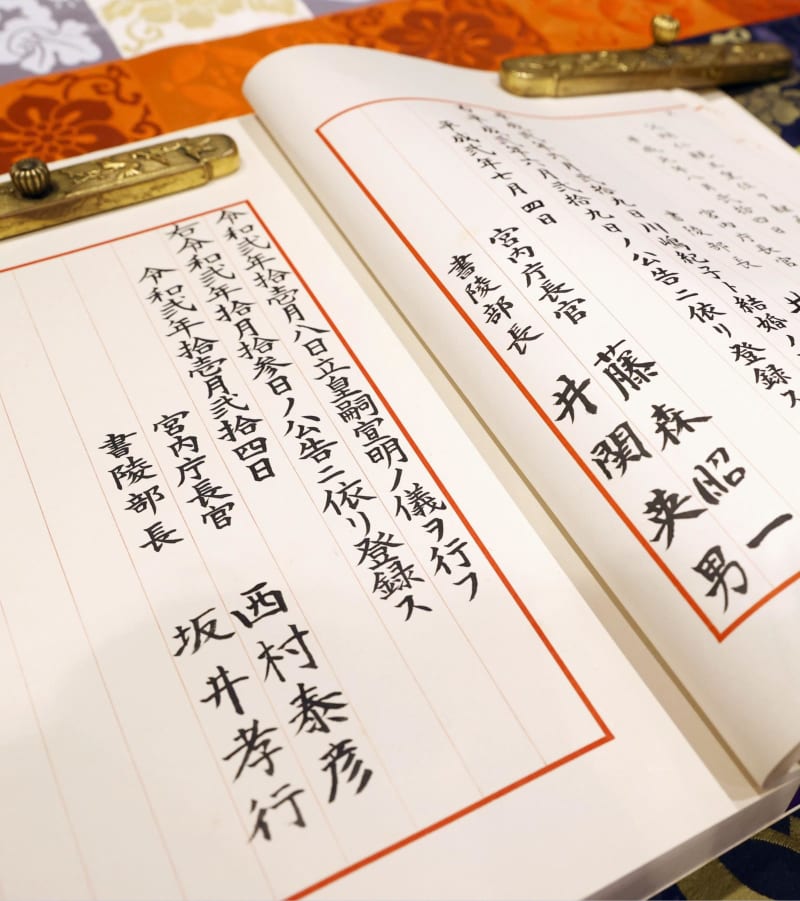 宮内庁長官
書陵部長
年六月弐拾九日川嶋紀子ト結婚
年六月弐拾九日ノ公告ニ依リ登録ス
平成弐年七月四日
宮内庁長官 藤森昭一
書陵部長 井関英男
令和弐年拾壱月八日立皇嗣宣明ノ儀ヲ行フ
右令和弐年拾月拾参日ノ公告ニ依リ登録ス
令和弐年拾壱月弐拾四日
宮内庁長官 西村泰彦
書陵部長 坂井孝行